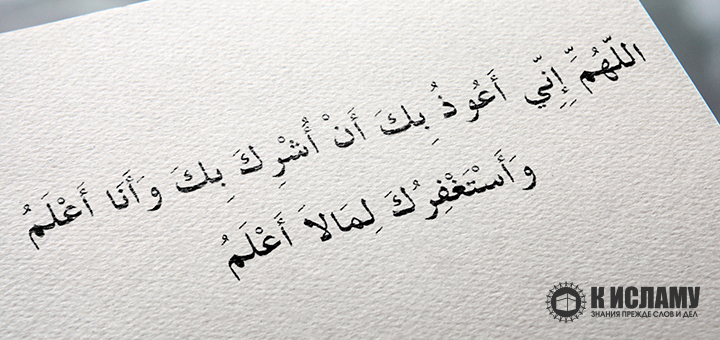 اللّٰهُمَّ إِنِّي أَعُوذُ بِكَ أَنْ أُشْرِكَ بِكَ وَأَنَا أَعْلَمُ
وَأَسْتَغْفِرُكَ لِمَالاَ أَعْلَمُ
К ИСЛАМУ
ЗНАНИЯ ПРЕЖДЕ СЛОВ И ДЕЛ